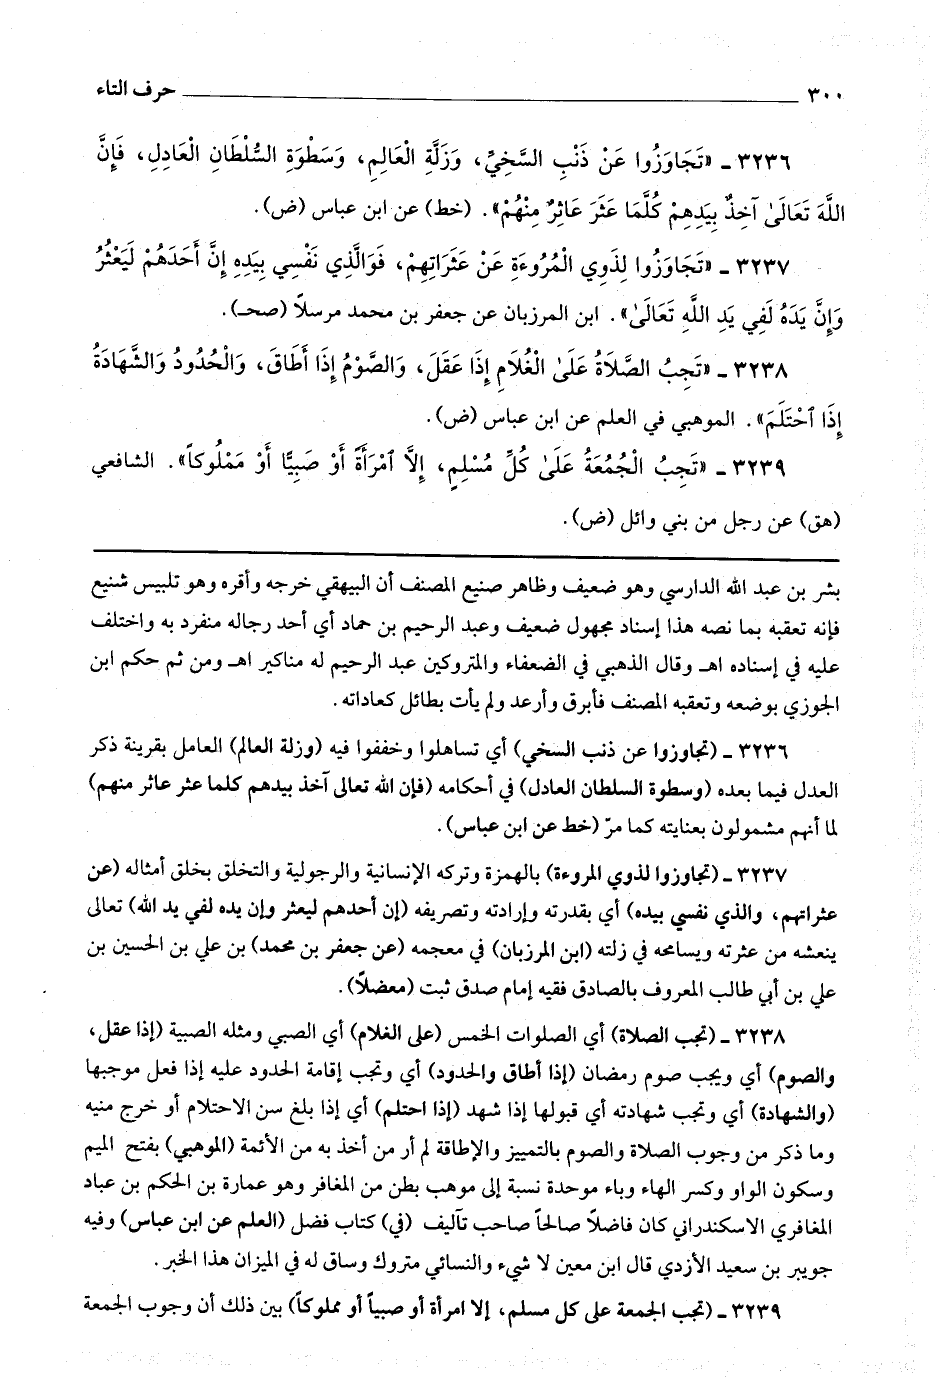 ٣٠٠ ـــــــ حرف التاء
٣٢٣٦ ـ «تَجَاوَزُوا عَنْ ذَنْبِ السَّخِيِّ، وَزَلَّةِ الْعَالِمِ، وَسَطْوَةِ السُّلْطَانِ الْعَادِلِ، فَإِنَّ
اللَّهَ تَعَالَىٰ آخِذٌ بِيَدِهِمْ كُلَّمَا عَثَرَ عَاثِرٌ مِنْهُمْ». (خط) عن ابن عباس (ض).
٣٢٣٧ ـ «تَجَاوَزُوا لِذَوِي الْمُرُوءَةِ عَنْ عَثَرَاتِهِمْ، فَوَالَّذِي نَفْسِي بِيَدِهِ إِنَّ أَحَدَهُمْ لَيَعْثُرُ
وَإِنَّ يَدَهُ لَفِي يَدِ اللَّهِ تَعَالَىٰ». ابن المرزبان عن جعفر بن محمد مرسلاً (صحـ).
٣٢٣٨ ـ «تَجِبُ الصَّلَاةُ عَلَىٰ الْغُلَامِ إِذَا عَقَلَ، وَالصَّوْمُ إِذَا أَطَاقَ، وَالْحُدُودُ وَالشَّهَادَةُ
إِذَا ٱحْتَلَمَ». الموهبي في العلم عن ابن عباس (ض).
٣٢٣٩ ـ «تَجِبُ الْجُمُعَةُ عَلَىٰ كُلِّ مُسْلِمٍ، إِلَّا ٱمْرَأَةً أَوْ صَبِيًّا أَوْ مَمْلُوكاً». الشافعي
(هق) عن رجل من بني وائل (ض).
بشر بن عبد الله الدارسي وهو ضعيف وظاهر صنيع المصنف أن البيهقي خرجه وأقره وهو تلبيس شنيع
فإنه تعقبه بما نصه هذا إسناد مجهول ضعيف وعبد الرحيم بن حماد أي أحد رجاله منفرد به واختلف
عليه في إسناده اهـ وقال الذهبي في الضعفاء والمتروكين عبد الرحيم له مناكير اهـ ومن ثم حكم ابن
الجوزي بوضعه وتعقبه المصنف فأبرق وأرعد ولم يأت بطائل كعاداته.
٣٢٣٦ ـ (تجاوزوا عن ذنب السخي) أي تساهلوا وخففوا فيه (وزلة العالم) العامل بقرينة ذكر
العدل فيما بعده (وسطوة السلطان العادل) في أحكامه (فإن الله تعالى آخذ بيدهم كلما عثر عاثر منهم)
لما أنهم مشمولون بعنايته كما مرّ (خط عن ابن عباس).
٣٢٣٧ ـ (تجاوزوا لذوي المروءة) بالهمزة وتركه الإنسانية والرجولية والتخلق بخلق أمثاله (عن
عثراتهم، والذي نفسي بيده) أي بقدرته وإرادته وتصريفه (إن أحدهم ليعثر وإن يده لفي يد الله) تعالى
ينعشه من عثرته ويسامحه في زلته (ابن المرزبان) في معجمه (عن جعفر بن محمد) بن علي بن الحسين بن
علي بن أبي طالب المعروف بالصادق فقيه إمام صدق ثبت (معضلاً).
٣٢٣٨ ـ (تجب الصلاة) أي الصلوات الخمس (على الغلام) أي الصبي ومثله الصبية (إذا عقل،
والصوم) أي ويجب صوم رمضان (إذا أطاق والحدود) أي وتجب إقامة الحدود عليه إذا فعل موجبها
(والشهادة) أي وتجب شهادته أي قبولها إذا شهد (إذا احتلم) أي إذا بلغ سن الاحتلام أو خرج منيه
وما ذكر من وجوب الصلاة والصوم بالتمييز والإطاقة لم أر من أخذ به من الأئمة (الموهبي) بفتح الميم
وسكون الواو وكسر الهاء وباء موحدة نسبة إلى موهب بطن من المغافر وهو عمارة بن الحكم بن عباد
المغافري الاسكندراني كان فاضلاً صالحاً صاحب تآليف (في) كتاب فضل (العلم عن ابن عباس) وفيه
جويبر بن سعيد الأزدي قال ابن معين لا شيء والنسائي متروك وساق له في الميزان هذا الخبر.
٣٢٣٩ ـ (تجب الجمعة على كل مسلم، إلا امرأة أو صبياً أو مملوكاً) بين ذلك أن وجوب الجمعة